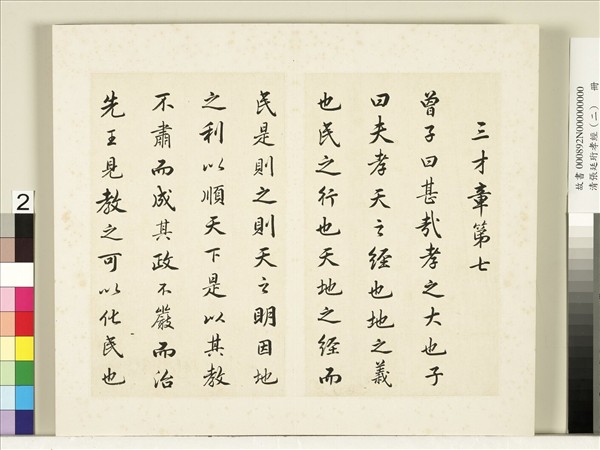 三才章第七
曾子曰甚哉孝之大也子
曰夫孝天之經也地之義
也民之行也天地之經而
民是則之則天之明因地
之利以順天下是以其教
不肅而成其政不嚴而治
先王見教之可以化民也
故書000892N000000000
清張廷珩孝經(二) 冊
2